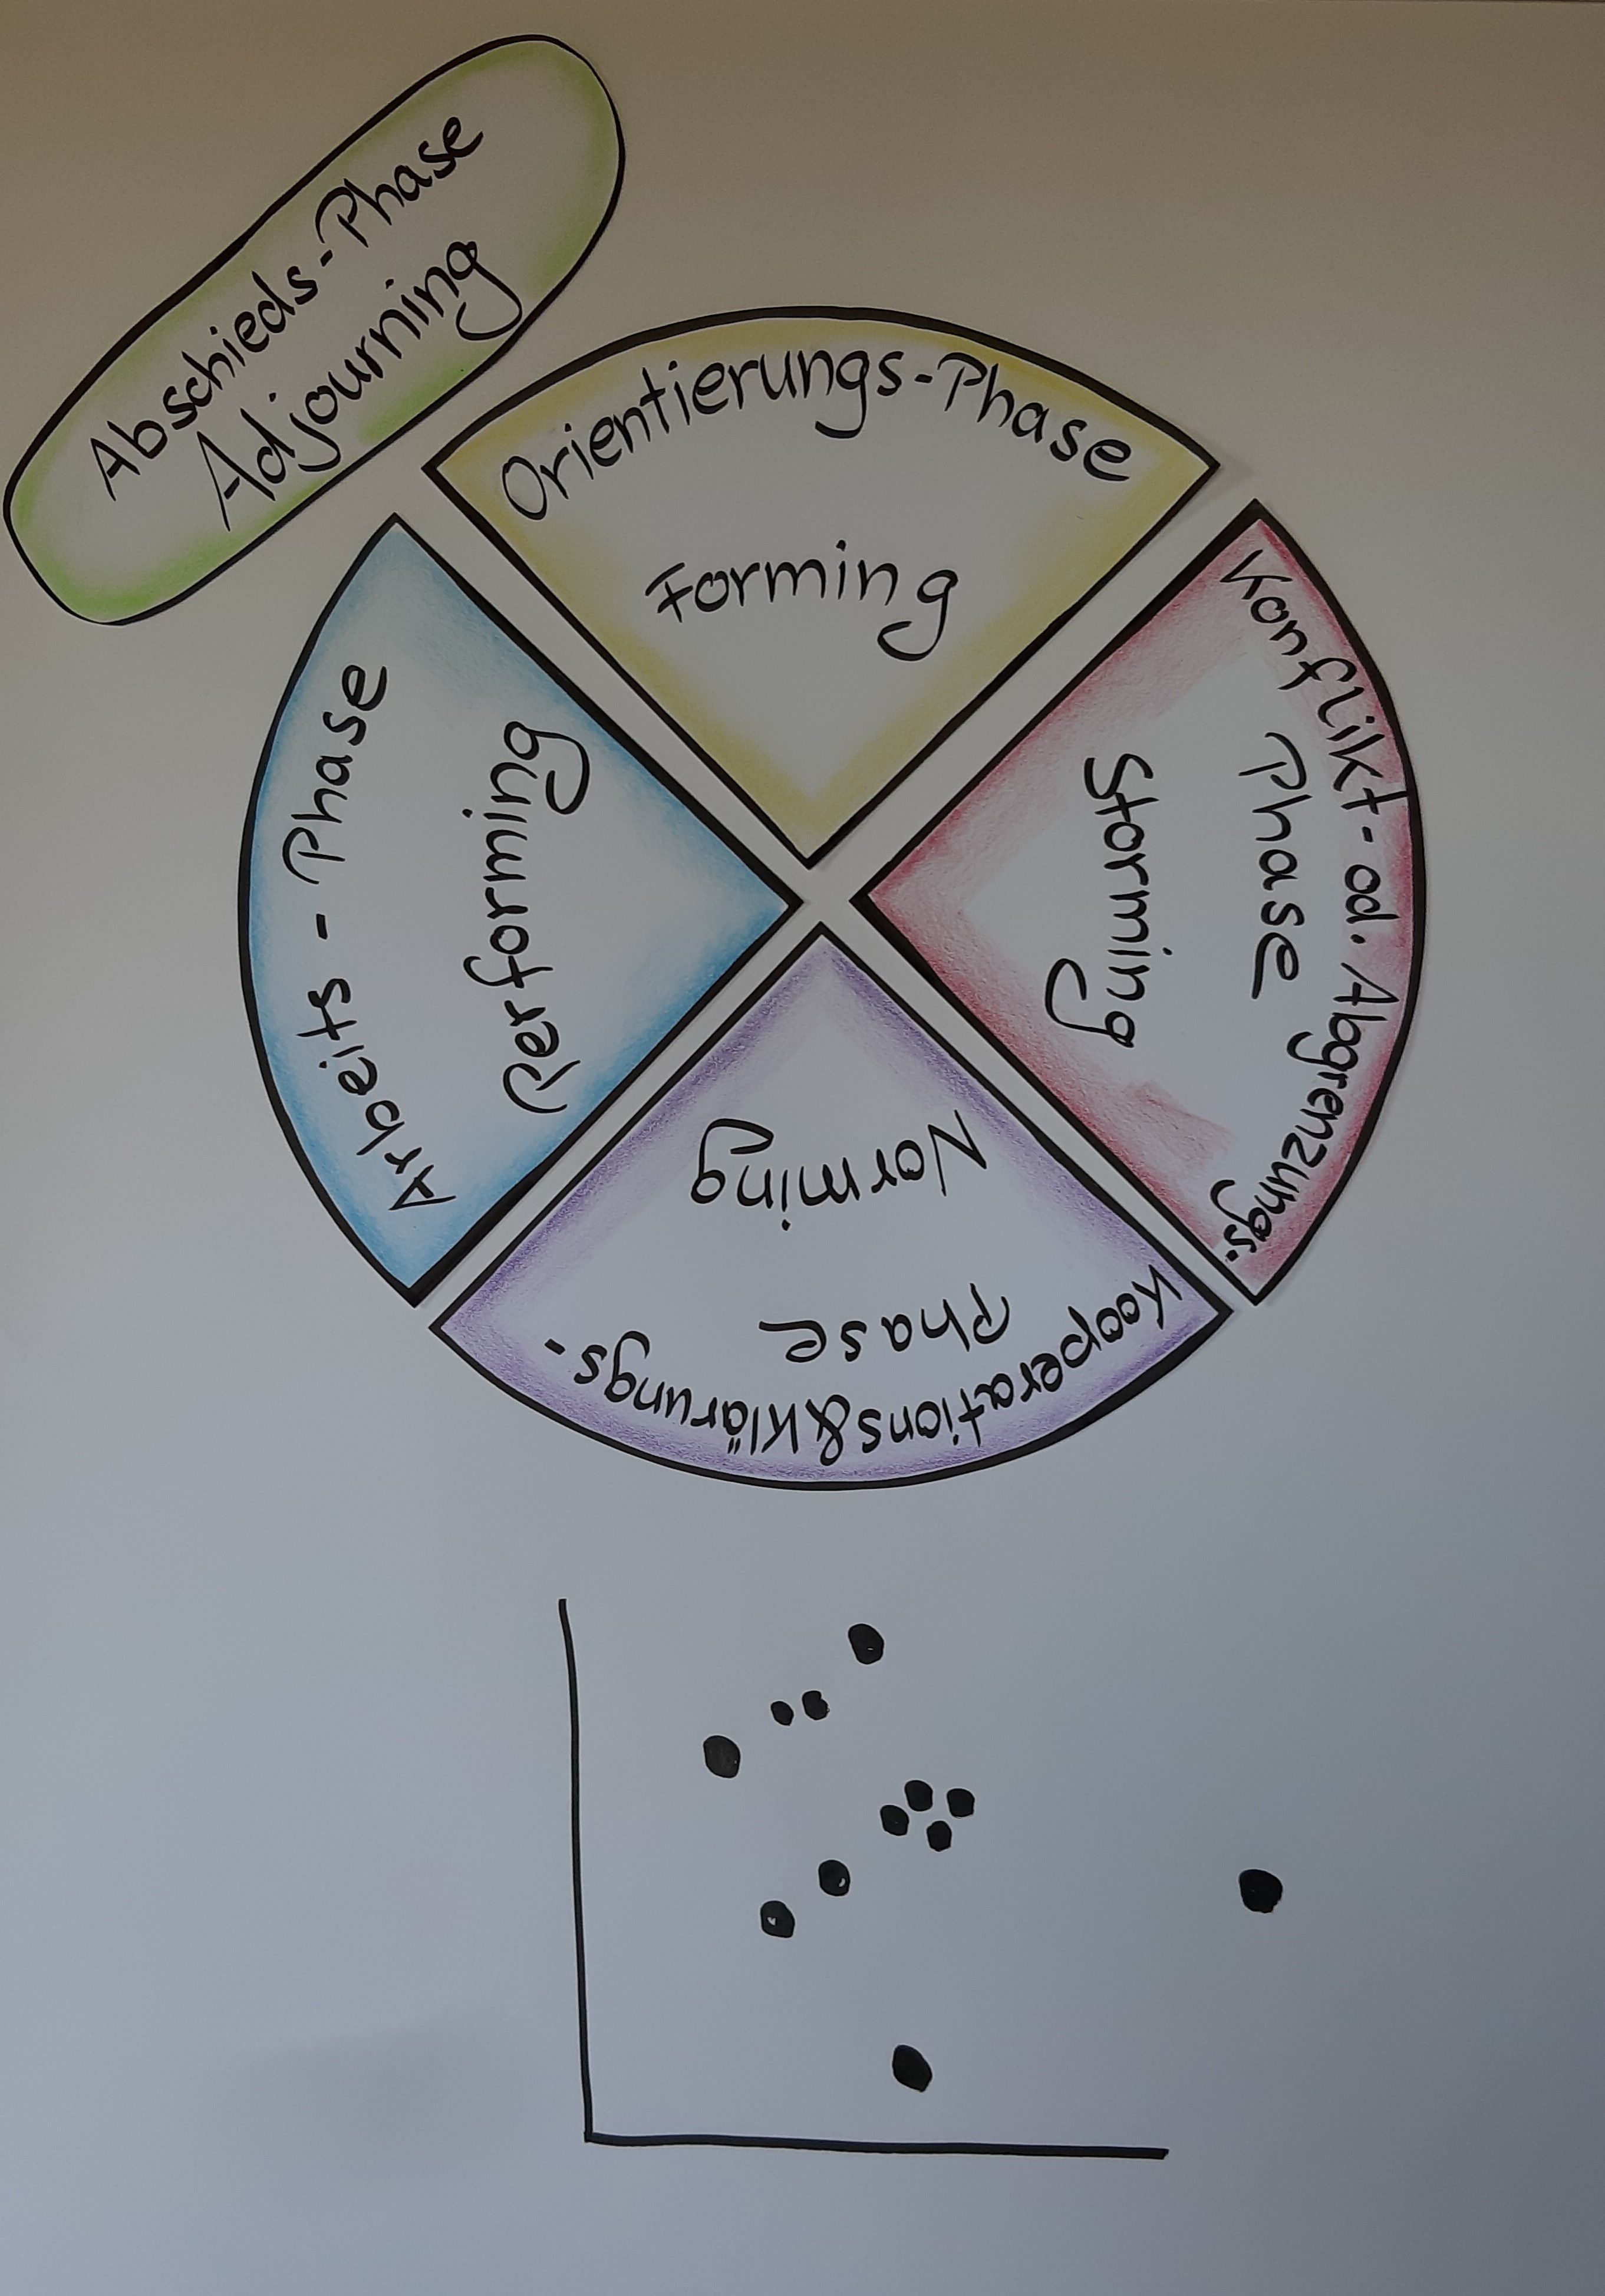 Abschieds-Phase
Adjourning
Orientierungs-Phase
Forming
Konflikt- od. Abgrenzungs-
Phase
Storming
Kooperations&Klärungs-
Phase
Norming
Arbeits-Phase
Performing